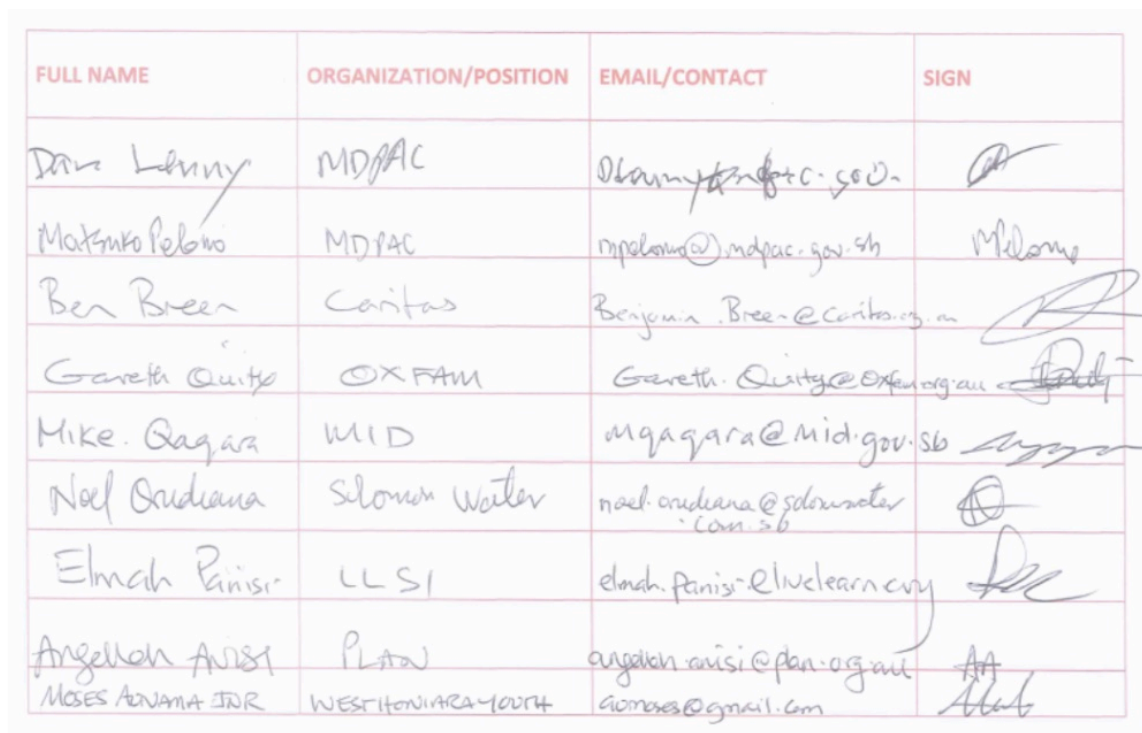 FULL NAME ORGANIZATION/POSITION EMAIL/CONTACT SIGN
Lenny MDPAC
MDPAC mpelomo@mdpac.gov.sb MPelomo
Ben Breen Caritas Benjamin.Breen@Caritas.org.au
Gareth Quity OXFAM Gareth.Quity@oxfam.org.au
Mike. Qaqara MID mqaqara@mid.gov.sb
Noel Orudiana Solomon Water noel.orudiana@solomonwater
.com.sb
Elmah Panisi LLSI elmah.panisi@livelearn
Angellah Anisi PLAN angellah.anisi@plan.org.au AA
MOSES JNR WEST HONIARA YOUTH aomoses@gmail.com